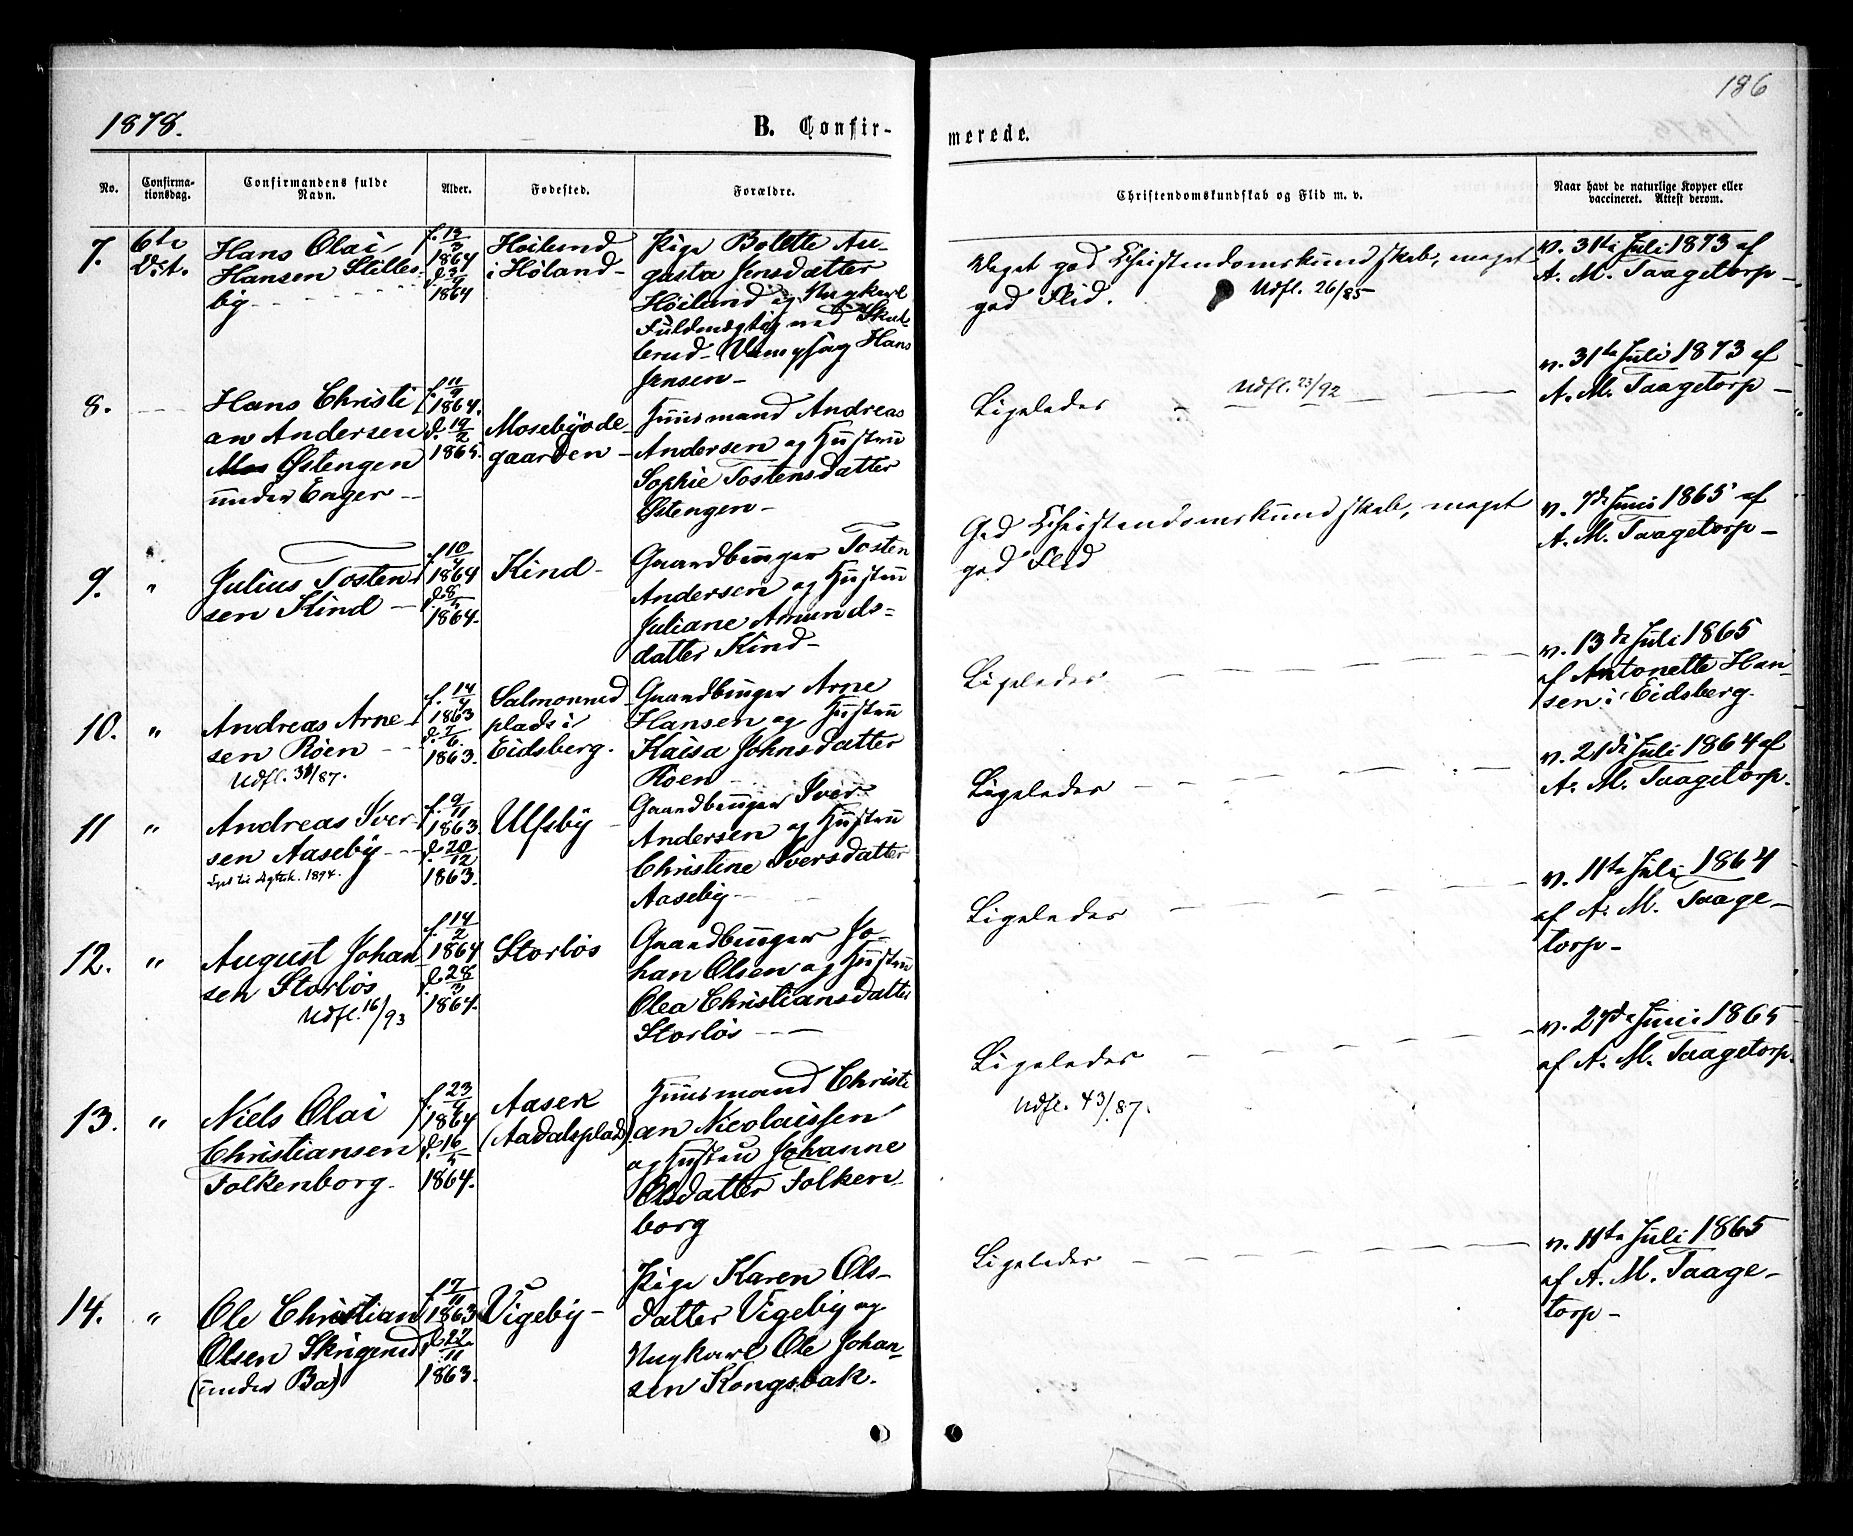 186
1878.
B. Confir-
merede.
No.
Confirma-
tionsdag.
Confirmandens fulde
Navn.
Alder.
Fødested.
Forældre.
Christendomskundskab og Flid m. v.
Naar havt de naturlige Kopper eller
vaccineret. Attest derom.
7.
6te
Hans Olai
Hansen Stilles-
by
f. 13/3
1864
1864
Høilund
i Høland-
Pige Bolette Au-
gusta Jensdatter
Høilund og Ungkarl
Fuldmægtig ved Skul-
lerud-Vamsaag Hans
Jensen-
Meget god Christendomskundskab, meget
god Flid.
Udfl. 26/85
v. 31te Juli 1873 af
A. M. Taagetorp-
8.
Hans Christi
an Andersen
Østengen
under Enger
f. 11/9
1864.
d. 19/2
1865.
Mosebyøde-
gaarden-
Huusmand Andreas
Andersen og Hustru
Sophie Tostensdatter
Østengen-
Ligeledes
Udfl. 23/92
v. 31te Juli 1873 af
A. M. Taagetorp-
9.
"
Julius Tosten-
sen Kind
f. 10/4
1864
d. 8/5
1864.
Kind-
Gaardbruger Tosten
Andersen og Hustru
Juliane Amunds-
datter Kind-
God Christendomskundskab, meget
god Flid
v. 7de Juni 1865 af
A. M. Taagetorp-
10.
"
Andreas Arne-
sen Röen
Udfl. 31/87.
f. 14/4
1863
d. 7/6
1863.
Salmonrud
plads i
Eidsberg.
Gaardbruger Arne
Hansen og Hustru
Kaisa Johnsdatter
Röen
Ligeledes
v. 13de Juli 1865
af Antonette Han-
sen i Eidsberg.
11
"
Andreas Iver-
sen Aaseby
1894.
f. 9/11
1863.
d. 20/12
1863.
Ulfsby
Gaardbruger Iver
Andersen og Hustru
Christine Iversdatter
Aaseby
Ligeledes
v. 21de Juli 1864 af
A. M. Taagetorp.
12.
"
August Johan
sen Storløs
Udfl. 16/93
f. 14/2
1864
d. 28/3
1864.
Storløs
Gaardbruger Jo-
han Olsen og Hustru
Olea Christiansdatter
Storløs
Ligeledes
v. 11te Juli 1864
af A. M. Taage-
torp-
13.
"
Niels Olai
Christiansen
Folkenborg.
f. 23/4
1864
d. 16/5
1864.
Aaser
(Aadalsplads)
Huusmand Christi
an Nicolaissen
og Hustru Johanne
Olsdatter Folken
borg
Ligeledes
Udfl. 43/87.
v. 27de Juni 1865
af A. M. Taagetorp.
14.
"
Ole Christian
Olsen Skrigerud
(under Ba)
f. 17/11
1863
d. 22/11
1863.
Vigeby-
Pige Karen Ols-
datter Vigeby og
Ungkarl Ole Johan-
sen Kongsbak.
Ligeledes
v. 11te Juli 1865
af A. M. Taage-
torp-